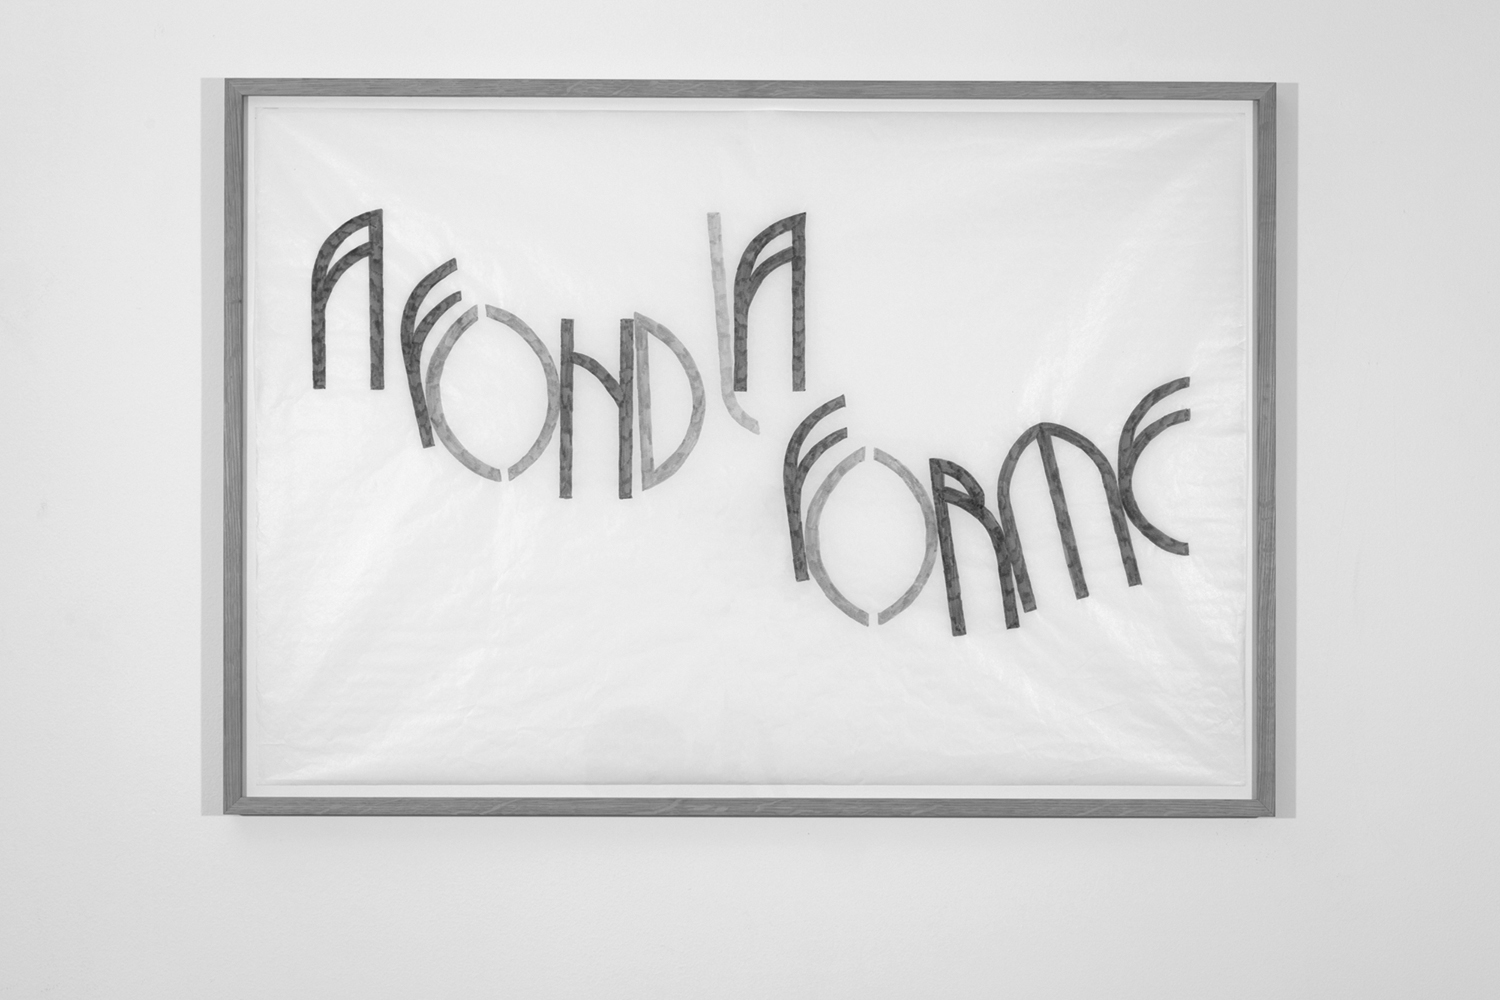 A FOND LA
FORME